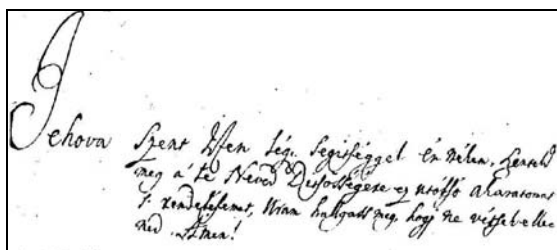 Jehova Szent Isten légy Segitséggel én nékem, Szenteld
meg á te Neved Ditsősségére ez utólsó akaratomat
's rendelésemet, Uram hallgass meg, hogy ne vétsek elle
ned. Ámen!